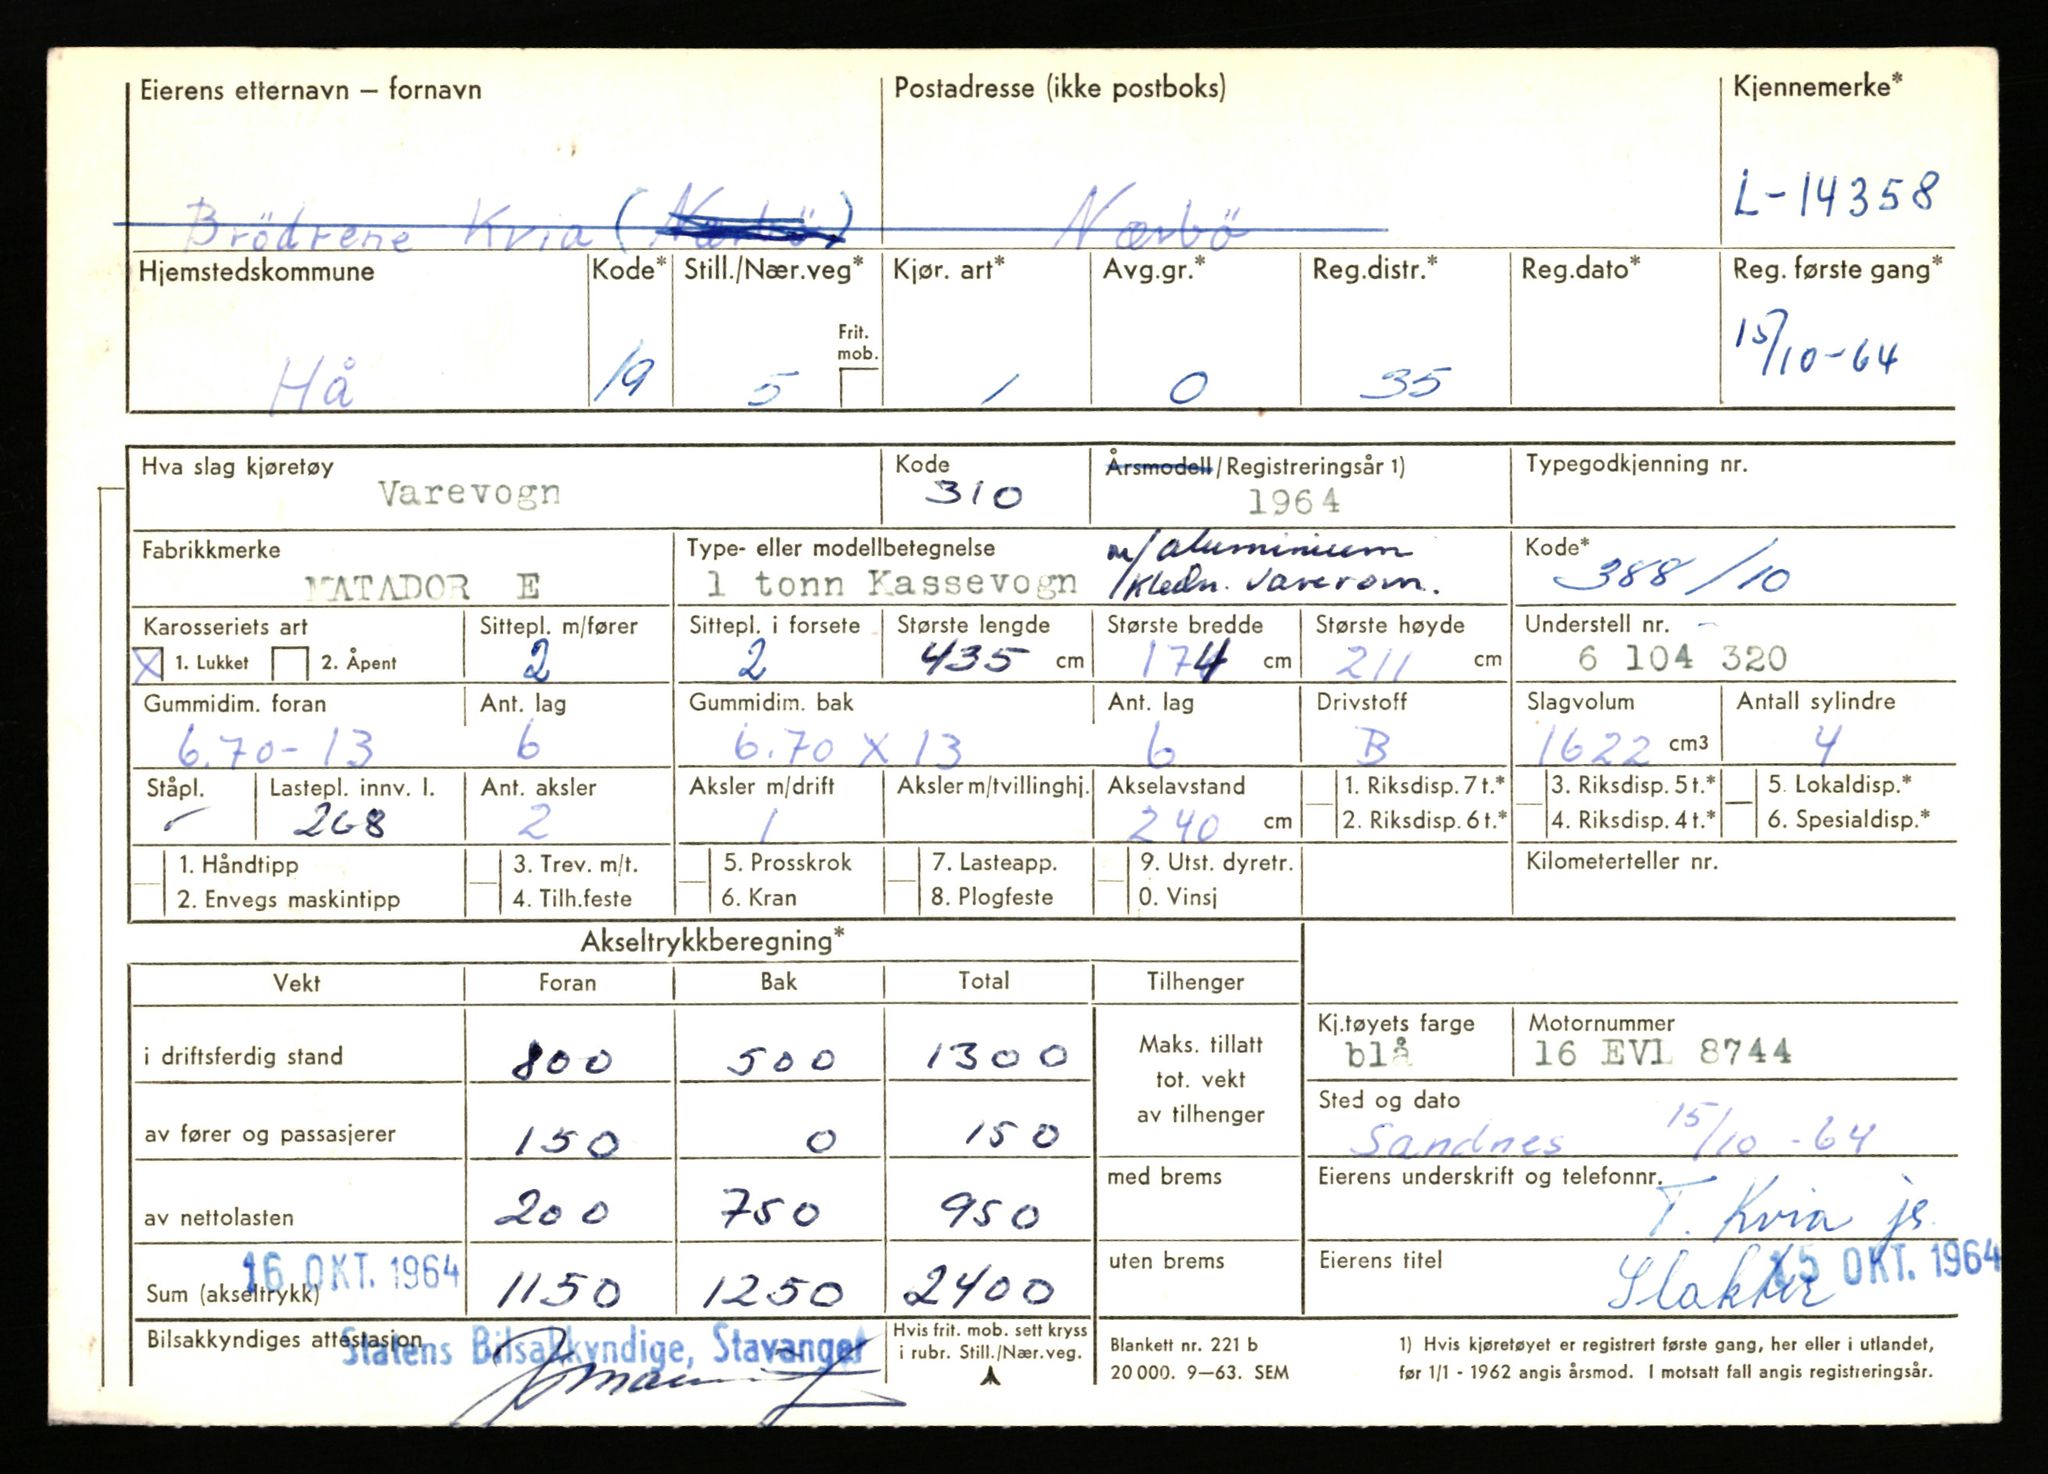 Eierens etternavn – fornavn
Postadresse (ikke postboks)
Kjennemerke*
Brödrene Kvia (Nærbö)
Nærbö
L-14358
Hjemstedskommune
Kode*
Still./Nær.veg*
Kjør. art*
Avg.gr.*
Reg.distr.*
Reg.dato*
Reg. første gang*
Frit. mob.
Hå
19
5
1
0
35
15/10-64
Hva slag kjøretøy
Varevogn
Kode
310
Årsmodell/Registreringsår 1)
1964
Typegodkjenning nr.
Fabrikkmerke
MATADOR E
Type- eller modellbetegnelse
1 tonn Kassevogn
m/aluminium
Kledn. varerom.
Kode*
388/10
Karosseriets art
X 1. Lukket 2. Åpent
Sittepl. m/fører
2
Sittepl. i forsete
2
Største lengde
435 cm
Største bredde
174 cm
Største høyde
211 cm
Understell nr.
6 104 320
Gummidim. foran
6.70-13
Ant. lag
6
Gummidim. bak
6.70 x 13
Ant. lag
6
Drivstoff
B
Slagvolum
1622 cm3
Antall sylindre
4
Ståpl.
Lastepl. innv. l.
268
Ant. aksler
2
Aksler m/drift
1
Aksler m/tvillinghj.
Akselavstand
240 cm
1. Riksdisp. 7 t.*
2. Riksdisp. 6 t.*
3. Riksdisp. 5 t.*
4. Riksdisp. 4 t.*
5. Lokaldisp.*
6. Spesialdisp.*
1. Håndtipp
2. Envegs maskintipp
3. Trev. m/t.
4. Tilh.feste
5. Prosskrok
6. Kran
7. Lasteapp.
8. Plogfeste
9. Utst. dyretr.
0. Vinsj
Kilometerteller nr.
Akseltrykkberegning*
Vekt Foran Bak Total Tilhenger
i driftsferdig stand 800 500 1300
av fører og passasjerer 150 0 150
av nettolasten 200 750 950
Sum (akseltrykk) 1150 1250 2400
16 OKT. 1964
Maks. tillatt
tot. vekt
av tilhenger
med brems
uten brems
Kj.tøyets farge
blå
Motornummer
16 EVL 8744
Sted og dato
Sandnes 15/10-64
Eierens underskrift og telefonnr.
T. Kvia jr.
Eierens titel
Slakter
15 OKT. 1964
Bilsakkyndiges attestasjon
Statens Bilsakkyndige, Stavanger
Hvis frit. mob. sett kryss
i rubr. Still./Nær.veg.
Blankett nr. 221 b
20 000. 9–63. SEM
1) Hvis kjøretøyet er registrert første gang, her eller i utlandet,
før 1/1 - 1962 angis årsmod. I motsatt fall angis registreringsår.